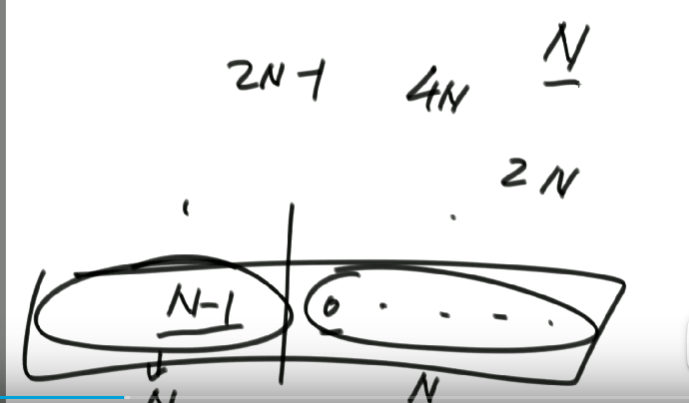 N
2N-1 4N
2N
N-1 0
N N